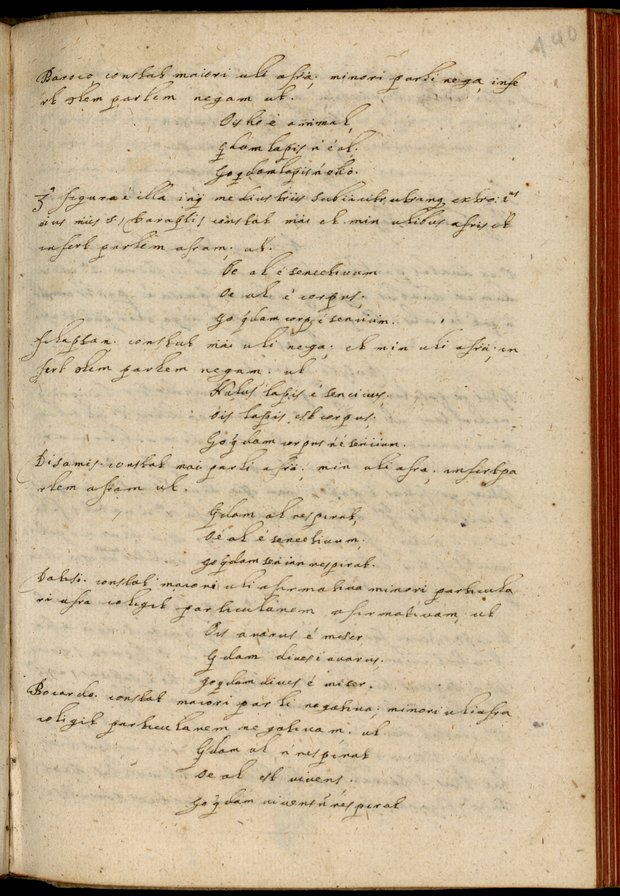 140
Baroco, constat maiori uli afrã; minori parti nega, infe
rt õlem partem negam ut.
Ois ho é animal,
Qdam lapis ñ é al.
Go qdam lapis ñ é ho.
3ª figura é illa in q medius
constat mãi et min
infert partem afram. ut.
Oe al é sencitivum
Oe al é corpus.
Go qdam corp, é sencium.
felapton. constat mãi uli nega; et min uli afrã; in
fert õlem partem negam. ut
Nulus lapis é sencivus,
Ois lapis est corpus,
Go qdam corpus ñ é sencium.
Disamis. constat mãi parti afrã; min uli afra; infert pa
rtem afram ut.
Qdam al respirat,
Oé al é sencitivum,
go qdam respirat.
Datisi. constat maiori uli afirmativa minori particula
ri afra coligit particularem afirmativam, ut
Ois avarus é miser
Qdam dives é avarus.
go qdam dives é miser.
Bocardo. constat maiori parti negativa, minori uli afra
coligit particularem negativam. ut
Qdam al ñ respirat
Oe al est vivens.
go qdam vivens ñ respirat